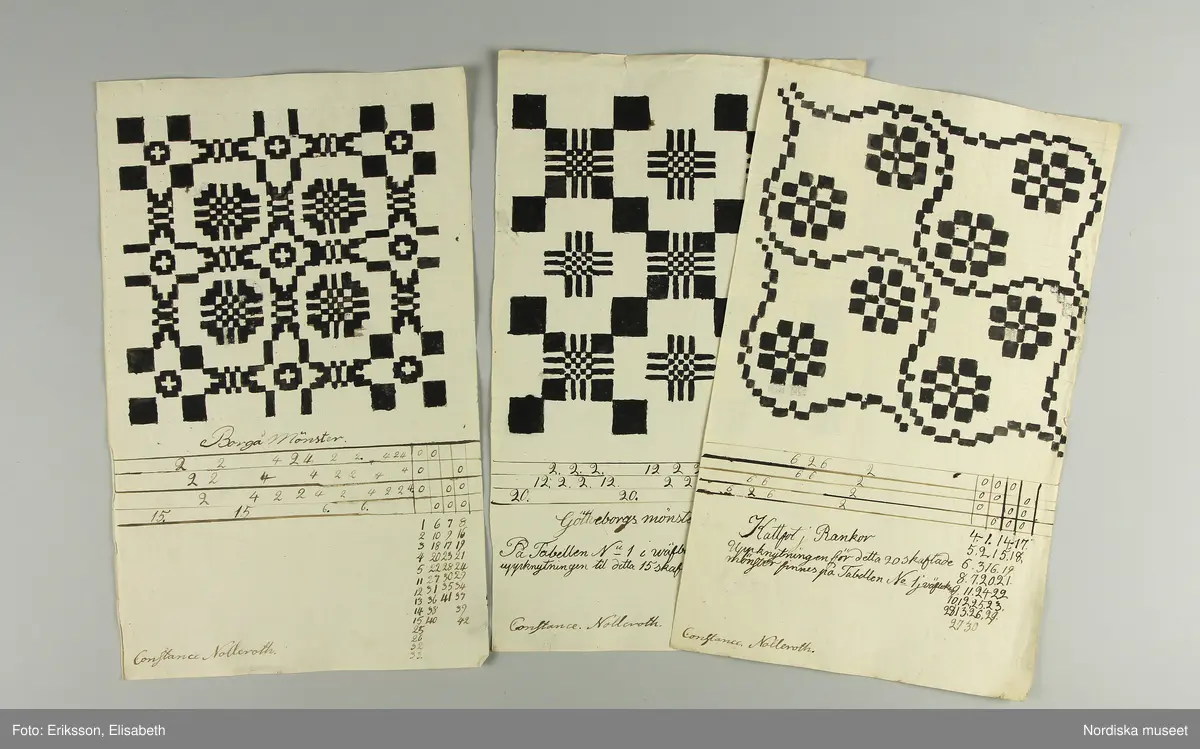 Borgå Mönster.
2 2 4 2 4 2 2 4 2 4 0 0
2 2 4 4 2 2 4 4 0 0
2 4 2 2 4 2 4 2 2 4 0 0
15. 15 6. 6. 0 0 0
1 6 7 8
2 10 9 16
3 18 17 19
4 20 23 21
5 22 28 24
11 27 30 29
12 31 35 34
13 36 41 37
14 38 39
15 40 42
25
26
32
33
Constance Nolleroth.
2. 2. 2. 12 2 2
12 2. 2 12. 2 2
20. 20.
Götheborgs mönste
På Tabellen No 1 i wäfb
uppknytningen til detta 15 skaf
Constance. Nolleroth.
6 2 6 2 0 0 0
6 6 2 0 0
6 6 2 0 0
6 2 6 2 0 0 0
Kattfot j Rankor
Uppknytningen för detta 20 skaftade
mönster finnes på Tabellen No 1 j wäfbok
4. 1. 14. 17.
5. 2. 15. 18.
6. 3. 16. 19
8. 7. 20. 21.
9. 11. 24. 22
10. 12. 25. 23.
28. 13. 26. 29.
27. 30
Constance. Nolleroth.
Foto: Eriksson, Elisabeth
Nordiska museet